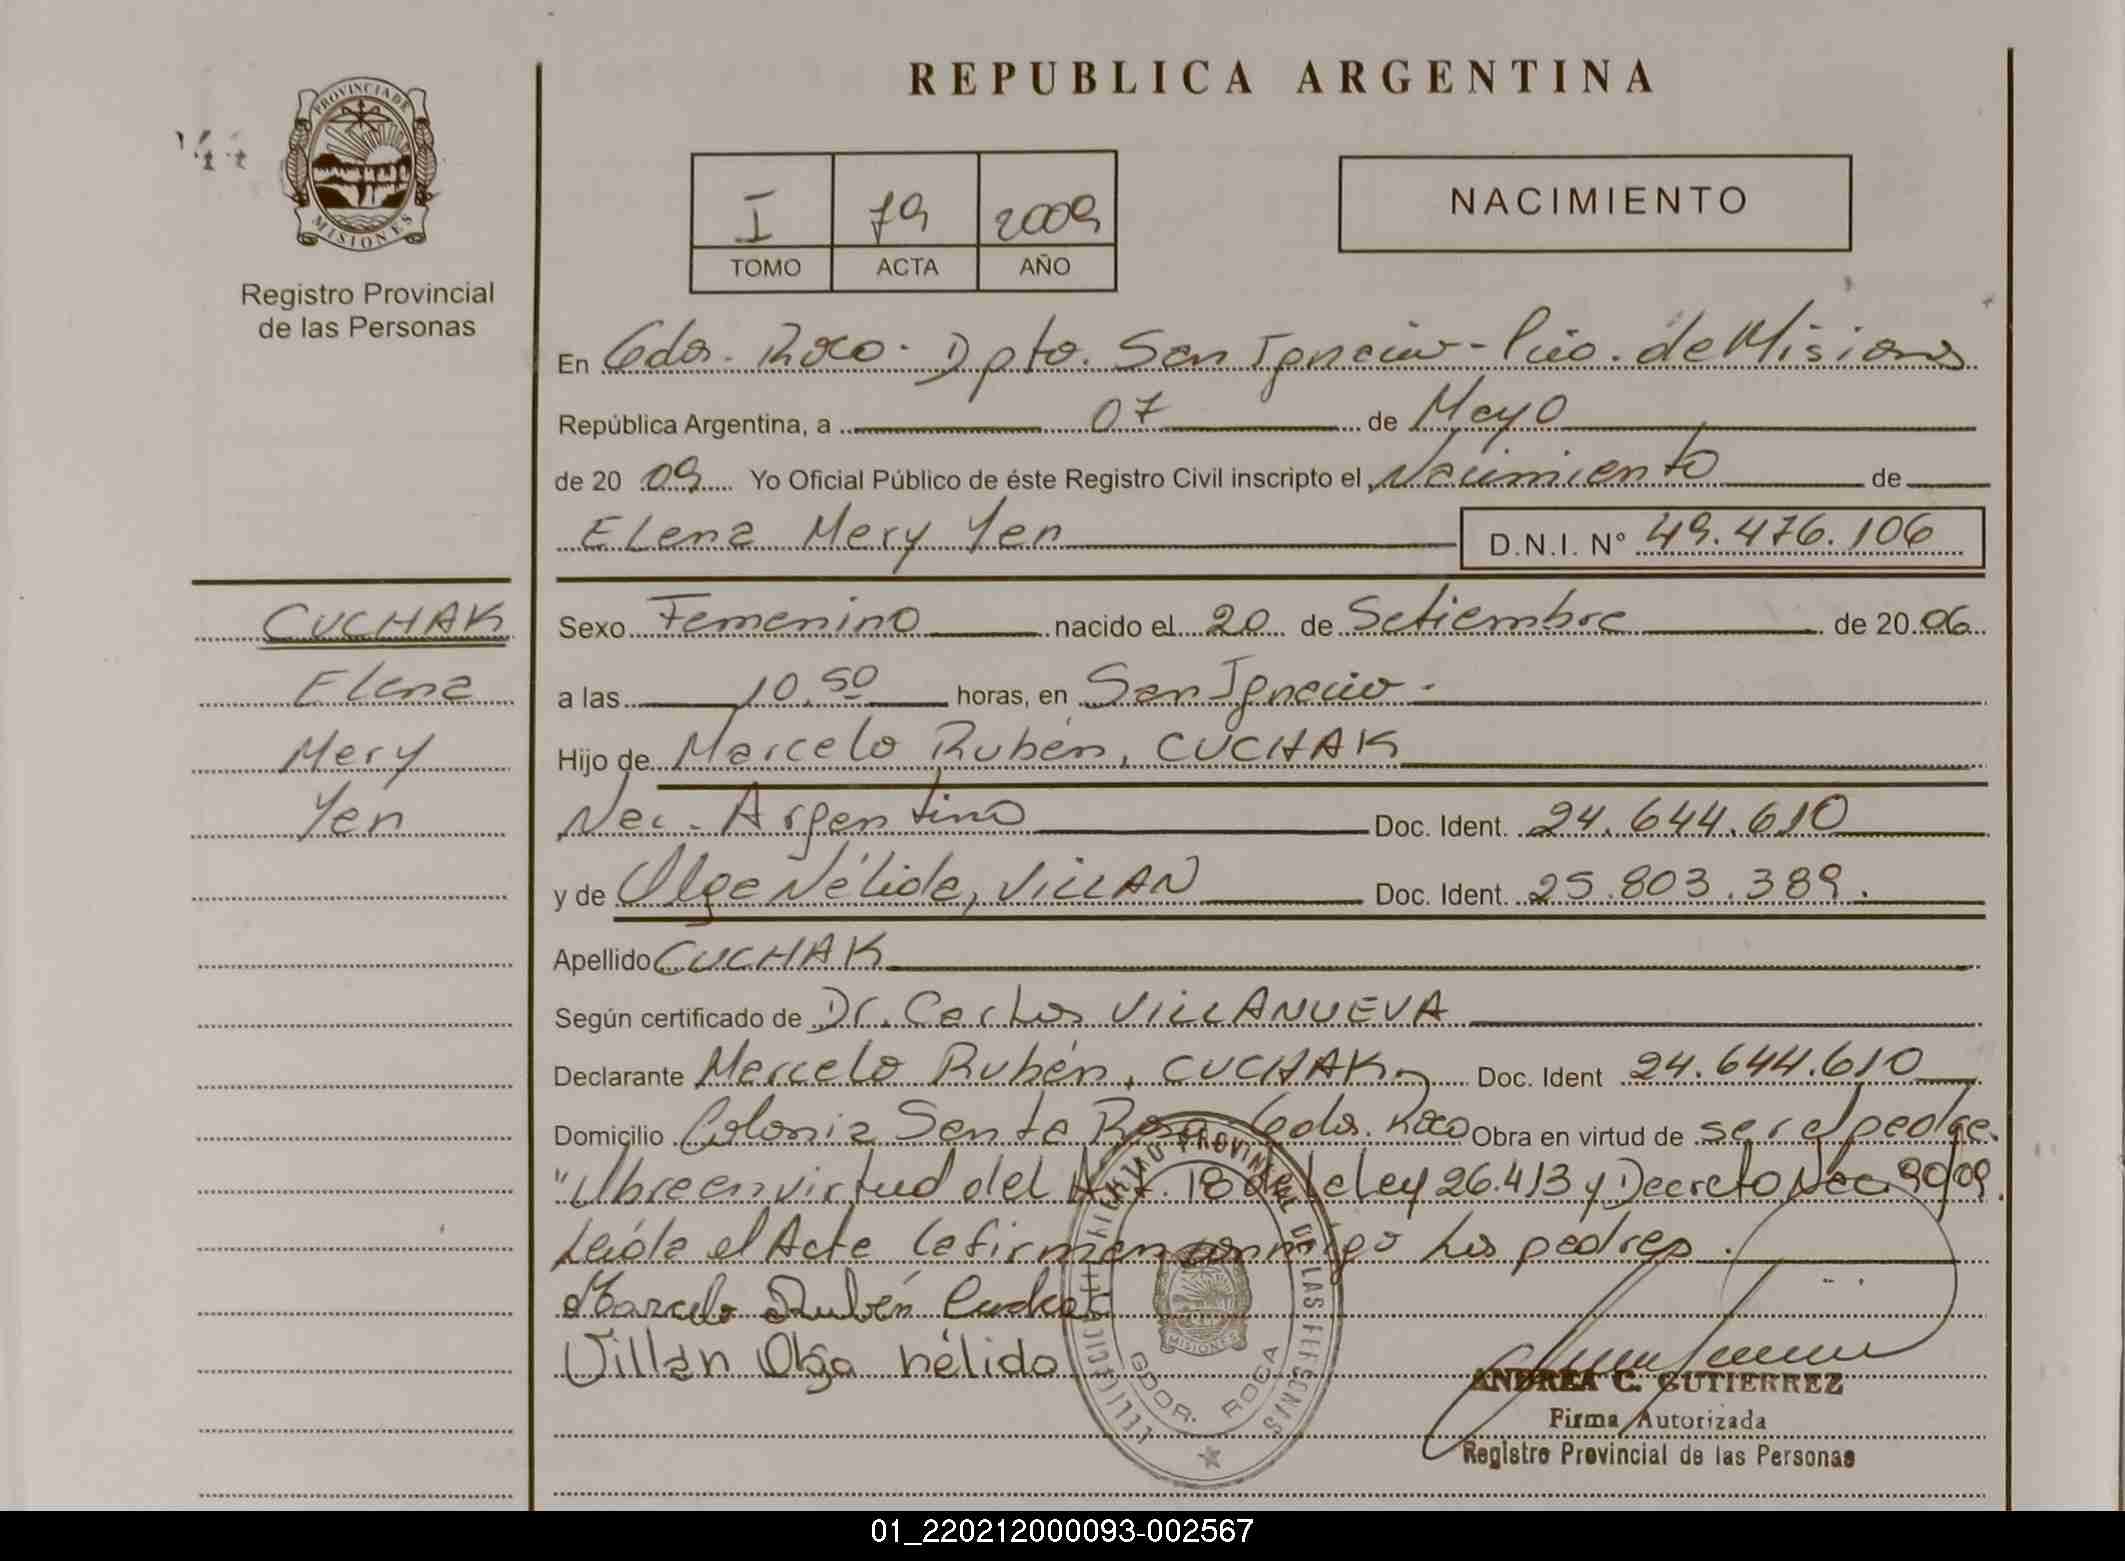 REPUBLICA ARGENTINA
PROVINCIA DE
MISIONES
Registro Provincial
de las Personas
I 79 2009
TOMO ACTA AÑO
NACIMIENTO
En Gdor. Roca. Dpto. San Ignacio - Pcia. de Misiones
República Argentina, a 07 de Mayo
de 20 09 Yo Oficial Público de éste Registro Civil inscripto el Nacimiento de
Elena Mery Yen D.N.I. N° 49.476.106
CUCHAK
Elena
Mery
Yen
Sexo Femenino nacido el 20 de Setiembre de 20 06
a las 10,50 horas, en San Ignacio.
Hijo de Marcelo Rubén, CUCHAK
Nac. Argentino Doc. Ident. 24.644.610
y de Olga Nélida, VILLAN Doc. Ident. 25.803.389.
Apellido CUCHAK
Según certificado de Dr. Carlos VILLANUEVA
Declarante Marcelo Rubén, CUCHAK Doc. Ident 24.644.610
Domicilio Colonia Santa Rosa Gdor. Roca Obra en virtud de ser el padre.
"Obra en virtud del Art. 18 de la Ley 26.413 y Decreto Nac. 90/09.
Leída el Acta la firman conmigo los padres.
Marcelo Rubén Cuchak
Villan Olga nélida
PROVINCIAL DE LAS PERSONAS
MISIONES
GDOR. ROCA
ANDREA C. GUTIERREZ
Firma Autorizada
Registro Provincial de las Personas
01_220212000093-002567